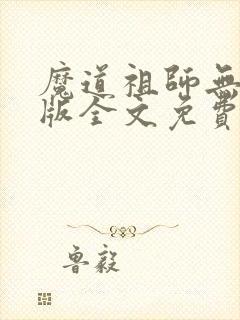 魔道祖師無
版全文免費
魯毅